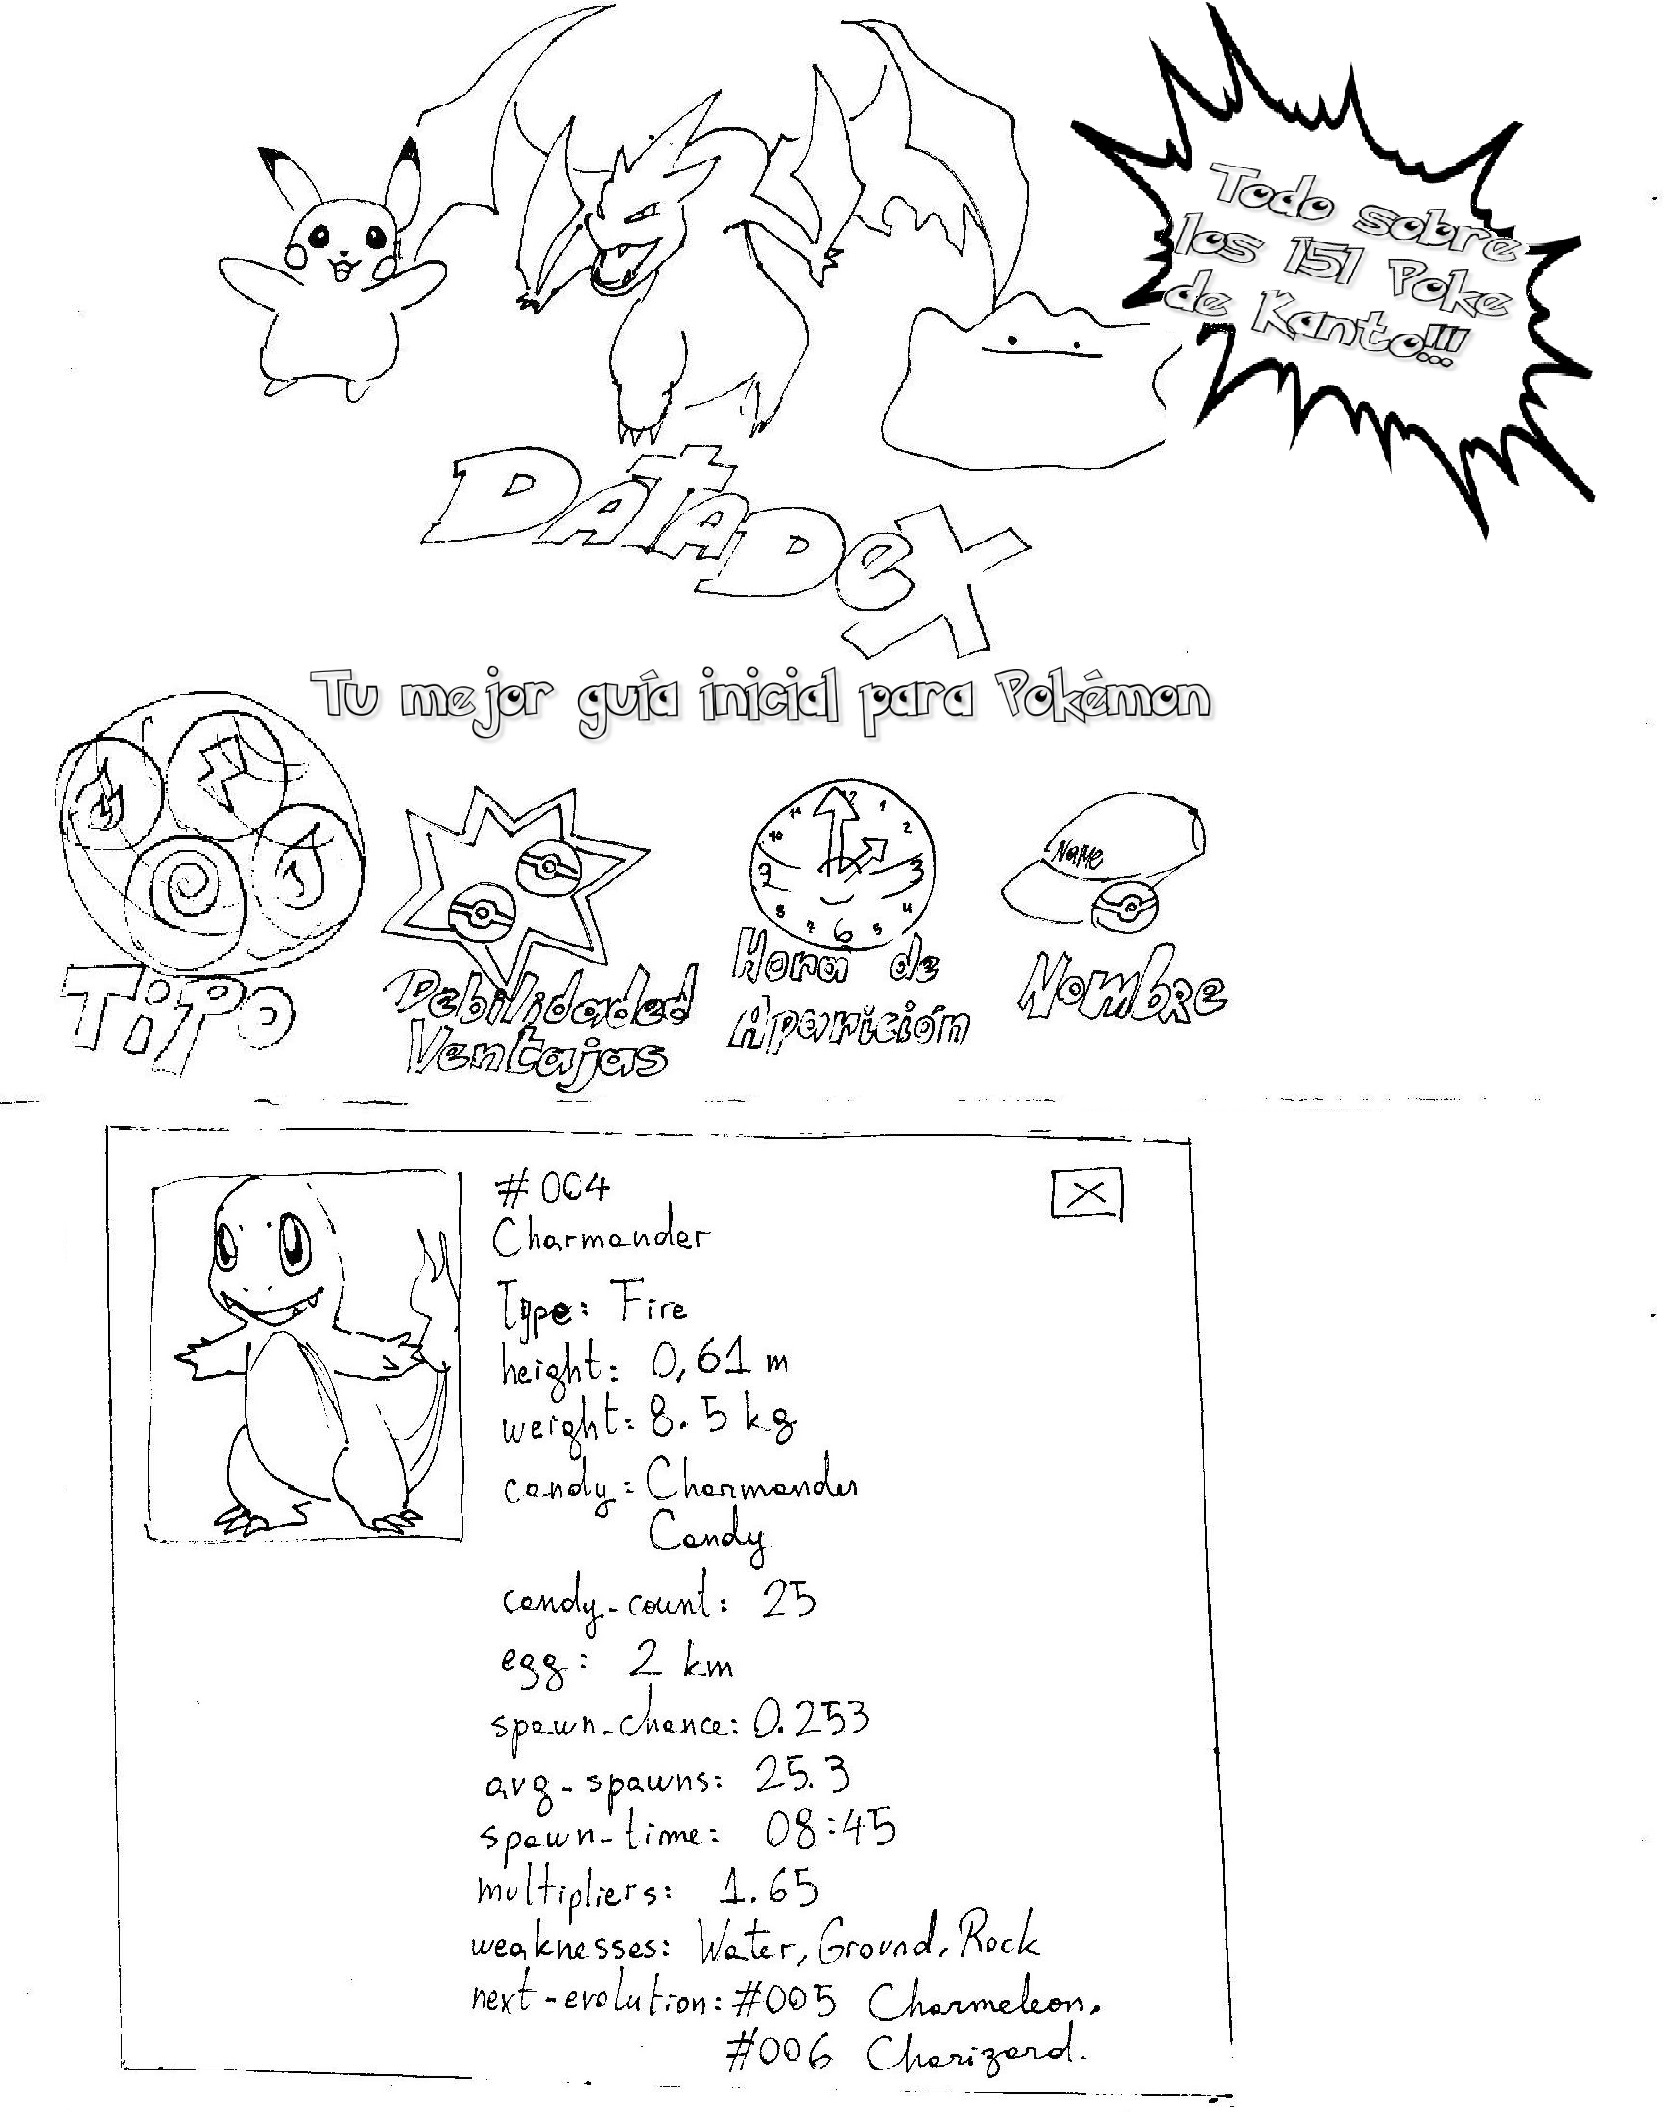 Todo sobre
los 151 Poke
de Kanto!!!
DATADEX
Tu mejor guía inicial para Pokémon
12
1
2
3
4
5
6
7
8
9
10
11
NAME
TiPO
Debilidaded
Ventajas
Hora de
Aparición
NomBRe
#004
Charmander
X
Type: Fire
height: 0,61 m
weight: 8.5 kg
candy: Charmander
Candy
candy-count: 25
egg: 2 km
spawn-chance: 0.253
avg-spawns: 25.3
spawn-time: 08:45
multipliers: 1.65
weaknesses: Water, Ground, Rock
next-evolution: #005 Charmeleon,
#006 Charizard.